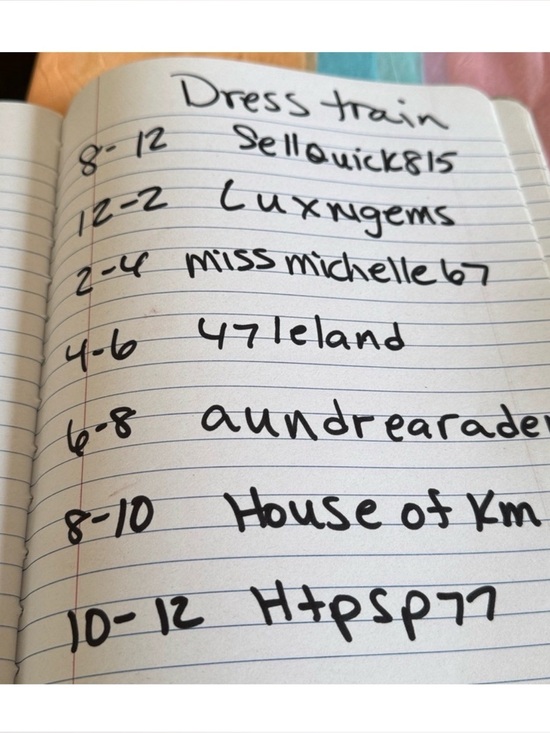 Dress train
8-12 SellQuick815
12-2 Luxnygems
2-4 missmichelle67
4-6 47leland
6-8
8-10 House of Km
10-12 Htpsp77